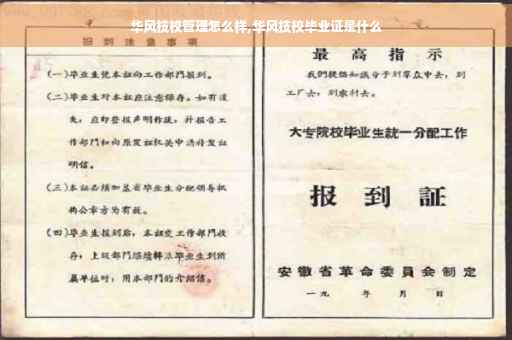 华风技校管理怎么样,华风技校毕业证是什么
报到注意事项
(一)毕业生凭本证向工作部门报到。
(二)毕业生对本证应注意保存。如有遗
失,应即登报声明作废,并报告工
作部门和向原发证机关申请补发证
明信。
(三)本证必须加盖省毕业生分配领导机
构公章方为有效。
(四)毕业生报到后,本证交工作部门收
存;上级部门继续转派毕业生到所
属单位时,用本部门的介绍信。
最高指示
我们提倡知识分子到群众中去,到
工厂去,到农村去。
大专院校毕业生統一分配工作
报到証
安徽省革命委員会制定
一九 年 月 日